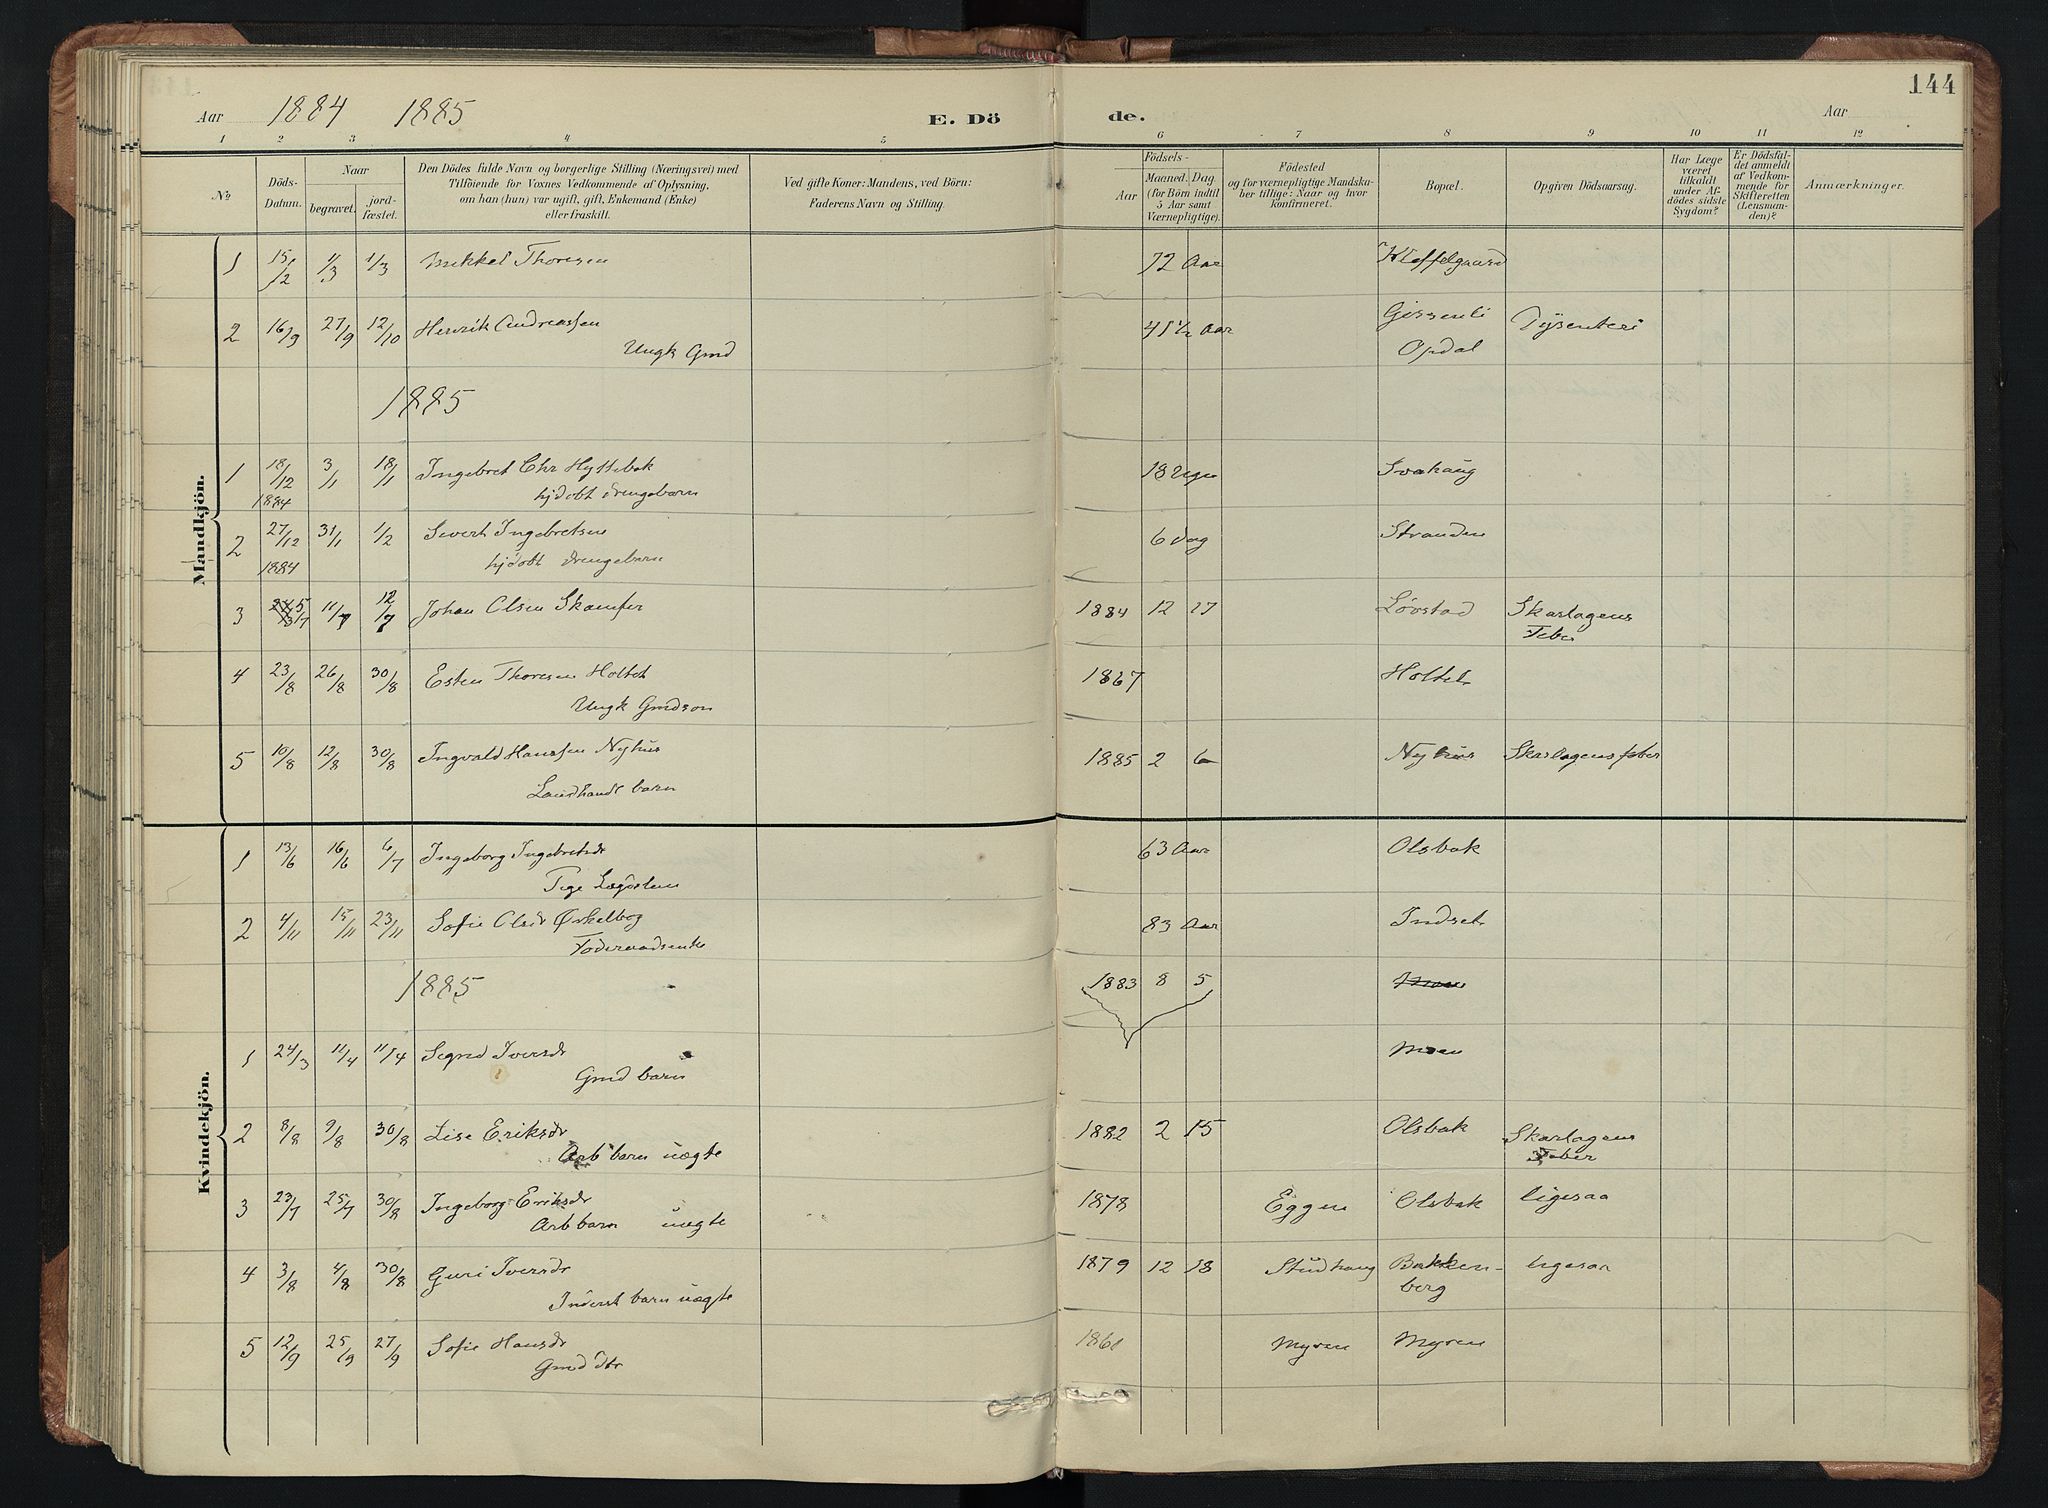 144
Aar 1884 1885 E. Dö de. Aar
1 2 3 4 5 6 7 8 9 10 11 12
No
Döds-Datum.
Naar
begravet.
jord-fæstet.
Den Dödes fulde Navn og borgerlige Stilling (Næringsvei) med
Tilföiende for Voxnes Vedkommende af Oplysning,
om han (hun) var ugift, gift, Enkemand (Enke)
eller fraskilt.
Ved gifte Koner: Mandens, ved Börn:
Faderens Navn og Stilling.
Födsels-
Aar
Maaned. Dag
(for Börn indtil
5 Aar samt
Værnepligtige).
Födested
og for værnepligtige Mandska-
ber tillige: Naar og hvor
konfirmeret.
Bopæl.
Opgiven Dödsaarsag.
Har Læge
været
tilkaldt
under Af-
dödes sidste
Sygdom?
Er Dödsfal-
det anmeldt
af Vedkom-
mende for
Skifteretten
(Lensman-
den)?
Anmærkninger.
Mandkjön.
1 15/2 1/3 1/3 Mikkel Thoresen 72 Aar Kleffelgaard
2 16/9 27/9 12/10 Henrik Andreassen 41 1/2 Aar Gissenli Dysenteri
Ungk Gmd Opdal
1885
1 18/12 3/1 18/1 Ingebret Chr Hyttebak 18 Uger
1884 hjdøbt drengebarn
2 27/12 31/1 1/2 Sivert Ingebretsen 6 dag Stranden
1884 hjdøbt drengebarn
3 5/7 11/7 12/7 Johan Olsen Skamfer 1884 12 17 Løvstad Skarlagens
Feber
4 23/8 26/8 30/8 Esten Thoresen Holtet 1867 Holtet
Ungk Gmdson
5 10/8 12/8 30/8 Ingvald Hanssen Nyhus 1885 2 6 Nyhus Skarlagensfeber
Landhandl barn
Kvindekjön.
1 13/6 16/6 6/7 Ingeborg Ingebretsdr 63 Aar Olsbak
Pige Lægdslem
2 4/11 15/11 23/11 Sofie Olsdr Ørkelbog 83 Aar Indset
Føderaadsenke
1885 1883 8 5 Moen
1 24/3 11/4 11/4 Iversdr Moen
Gmd barn
2 8/8 9/8 30/8 Lise Eriksdr 1882 2 15 Olsbak Skarlagens
Arb barn uægte Feber
3 23/7 25/7 30/8 Ingeborg Eriksdr 1878 Eggen Olsbak ligesaa
Arb barn uægte
4 3/8 4/8 30/8 Guri Iversdr 1879 12 18 Studhaug Bakken- ligesaa
Inderst barn uægte berg
5 12/9 25/9 27/9 Sofie Hansdr Myren Myren
Gmd dtr